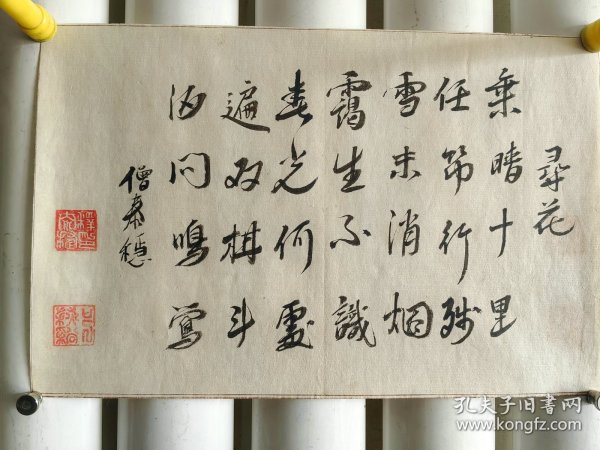 尋花
乗晴十里
任節行殘
雪未消烟
靄生不識
春光何處
遍双柑斗
酒問鳴鶯
僧泰穏
孔夫子旧书网
www.kongfz.com